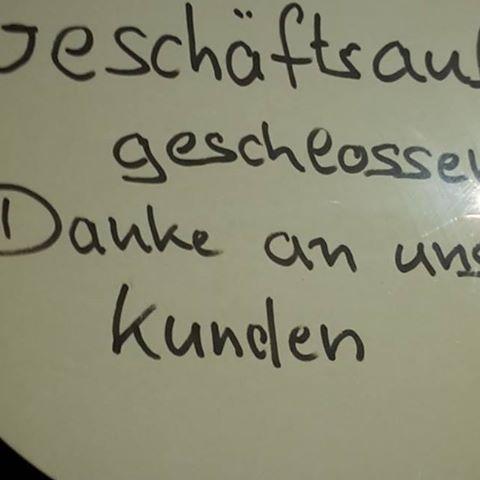 Geschäftsau
geschlossen
Danke an uns
Kunden